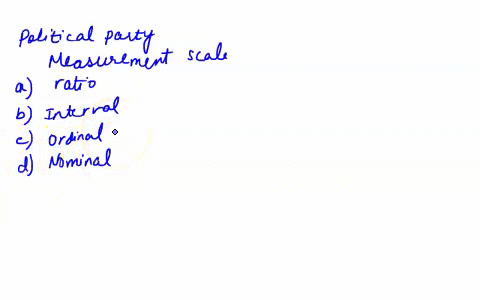 Political party
Measurement scale
a) ratio
b) Interval
c) Ordinal
d) Nominal